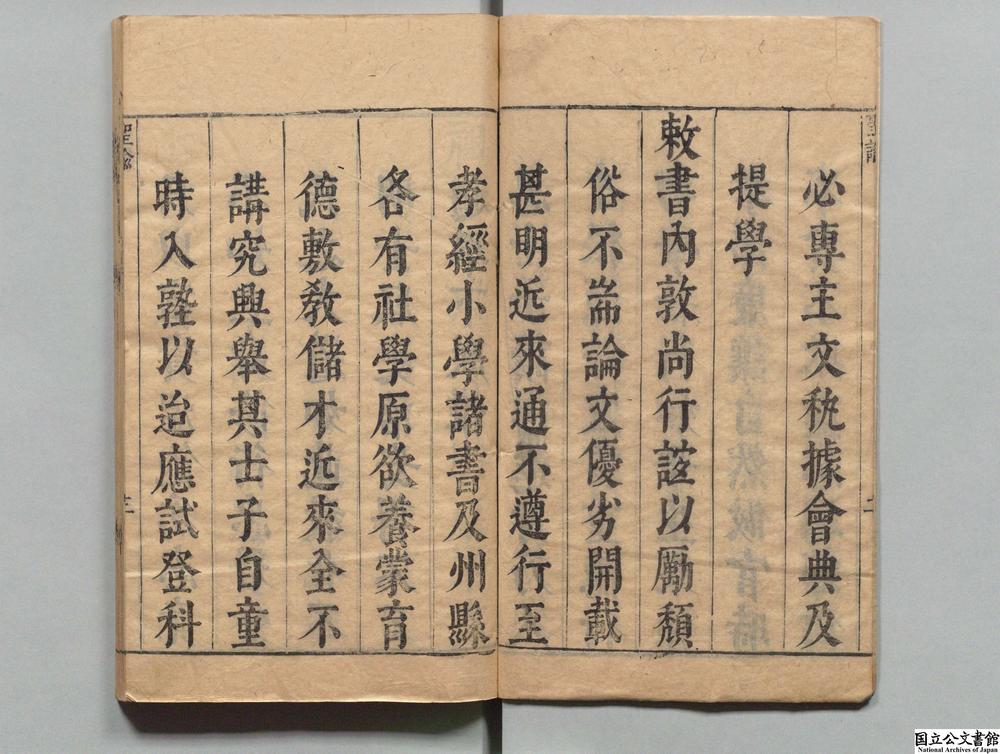 必專主文秇據會典及
提學
敕書內敦尚行誼以勵頹
俗不耑論文優劣開載
甚明近來通不遵行至
孝經小學諸書及州縣
各有社學原欲養蒙育
德敷教儲才近來全不
講究興舉其士子自童
時入塾以迨應試登科
聖諭
國立公文書館
National Archives of Japan